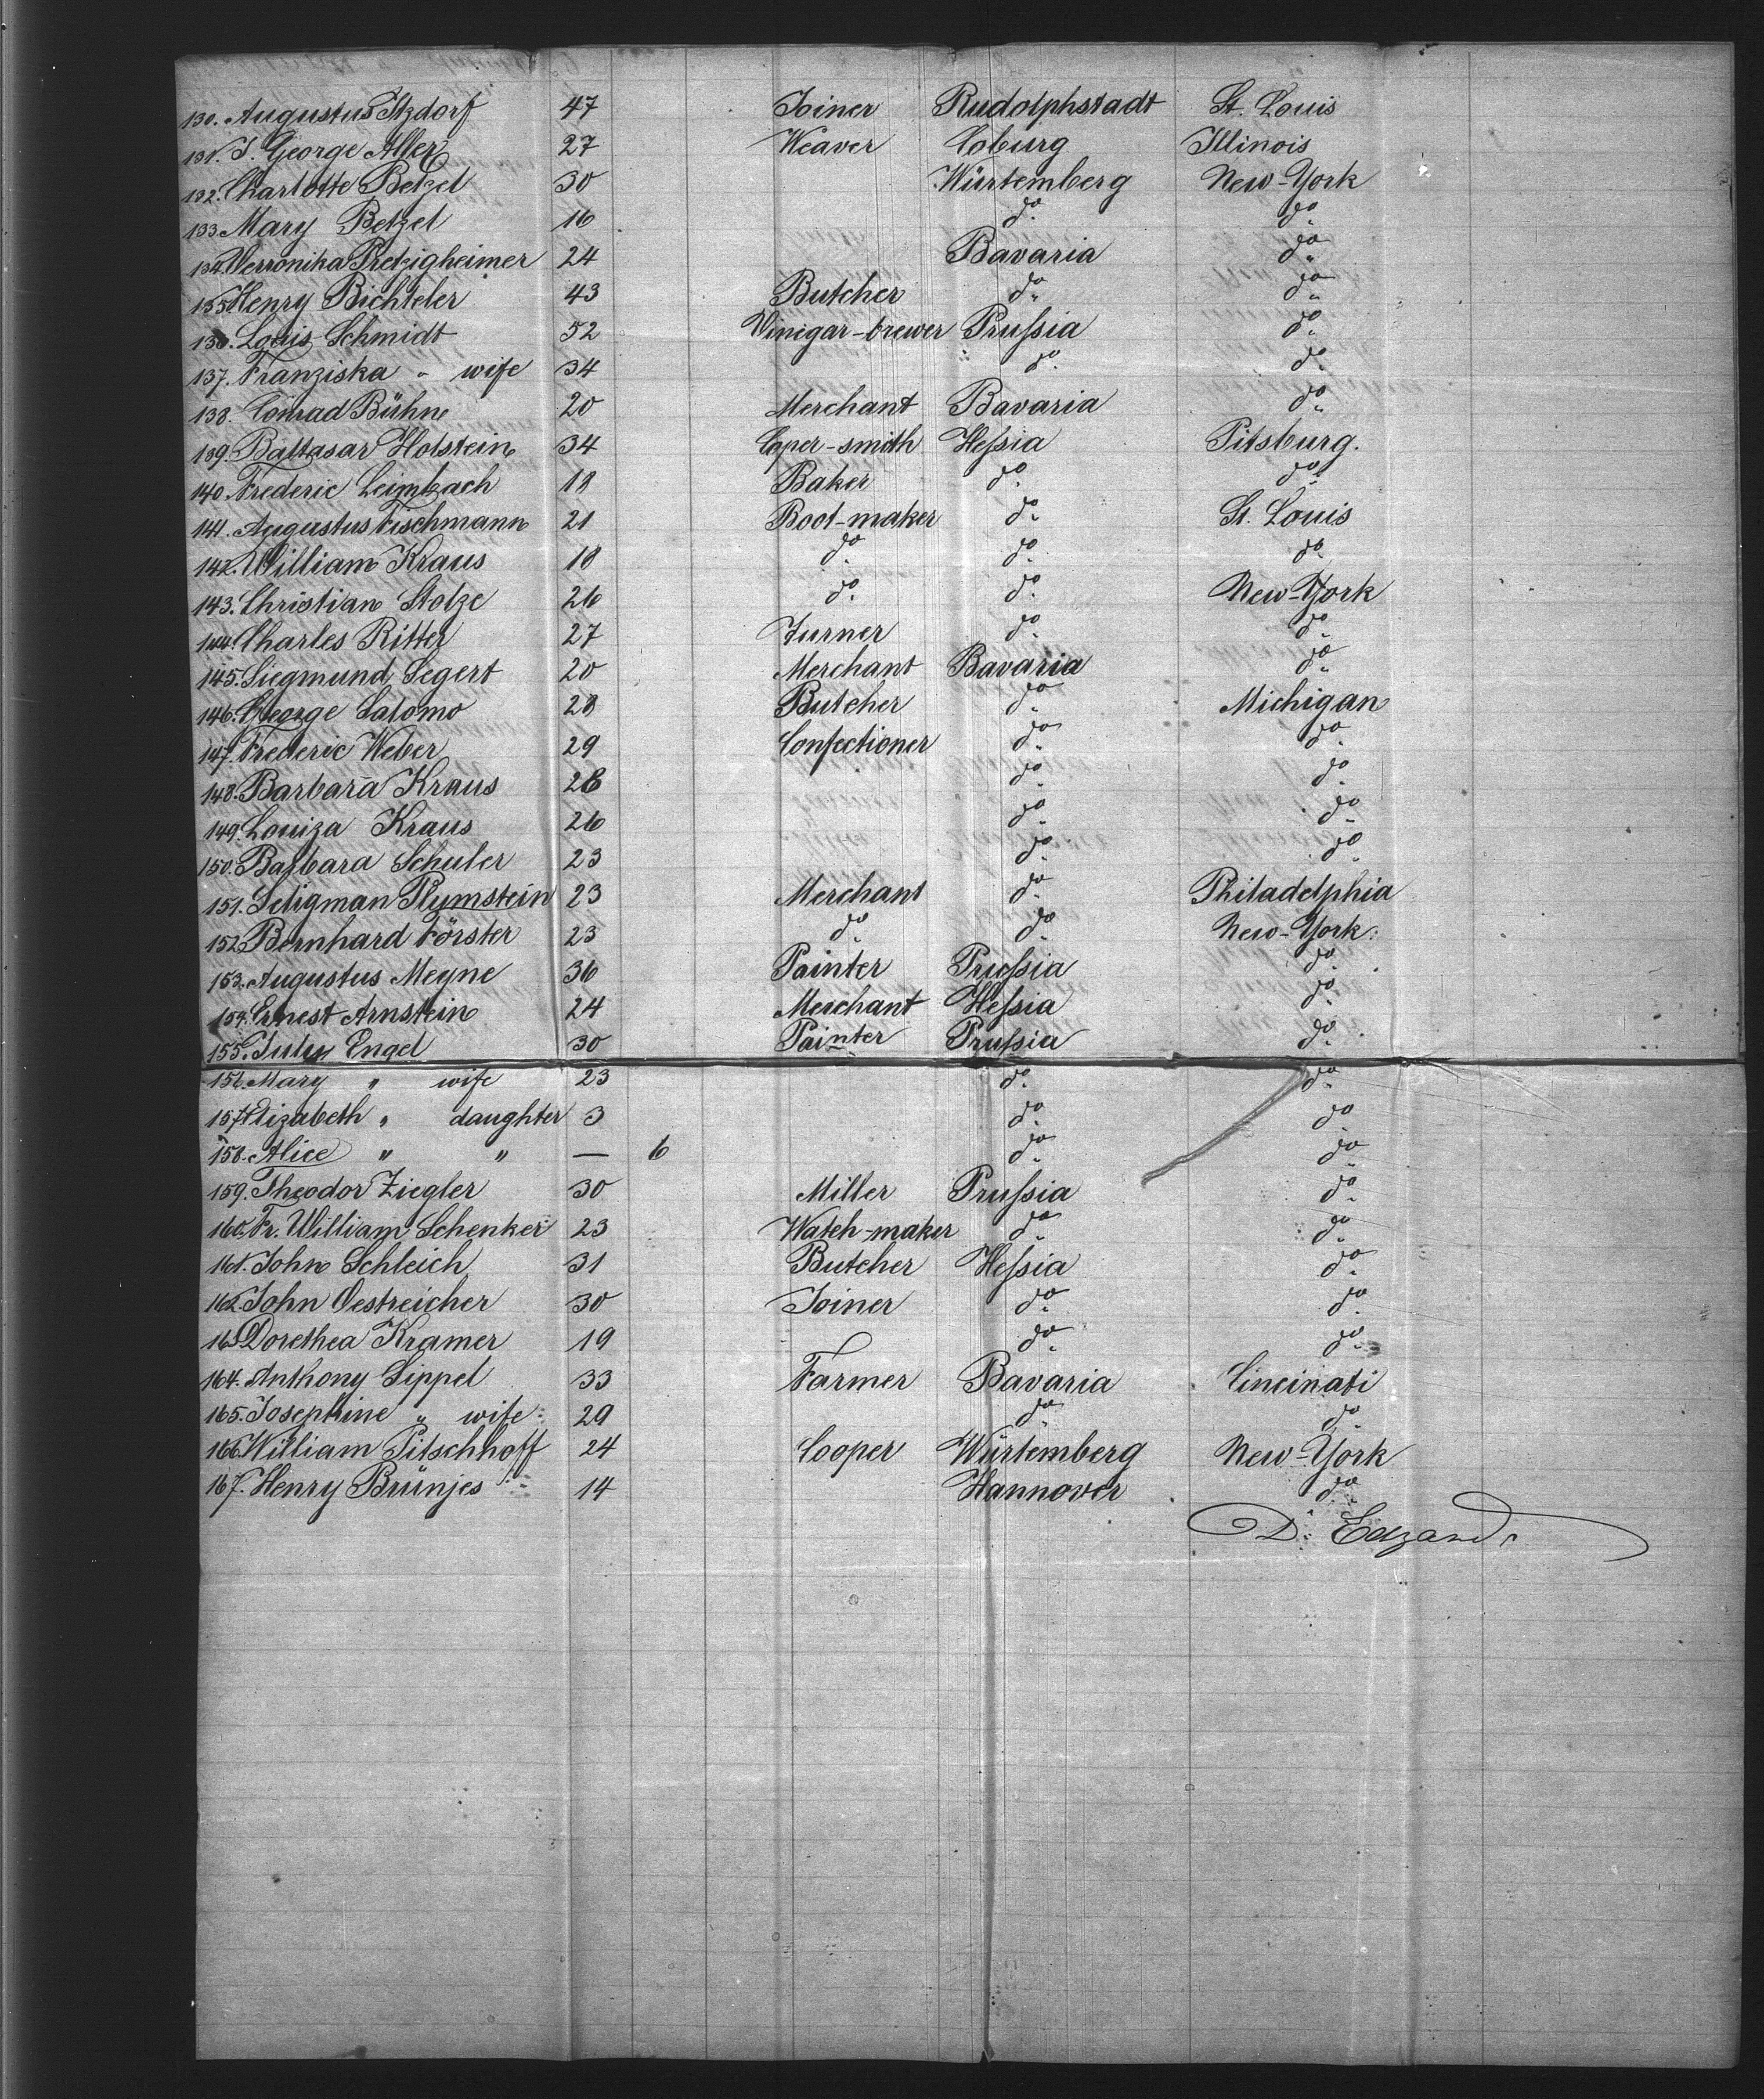 130. Augustus Itzdorf 47 Joiner Rudolphstadt St. Louis
131. J. George Aller 27 Weaver Coburg Illinois
132. Charlotte Betzel 30 Würtemberg New-York
133. Mary Betzel 16 do. do.
134. Verronika Pretzigheimer 24 Bavaria do.
135. Henry Bichteler 43 Butcher do. do.
136. Louis Schmidt 52 Vinegar-brewer Prussia do.
137. Franziska " wife 34 do. do.
138. Conrad Bühne 20 Merchant Bavaria do.
139. Baltasar Holstein 34 Coper-smith Hessia Pitsburg.
140. Frederic Leimbach 18 Baker do. do.
141. Augustus Fischmann 21 Boot-maker do. St. Louis
142. William Kraus 18 do. do. do.
143. Christian Stolze 26 do. do. New-York
144. Charles Ritter 27 Turner do. do.
145. Siegmund Segert 20 Merchant Bavaria do.
146. George Salomo 28 Butcher do. Michigan
147. Frederic Weber 29 Confectioner do. do.
148. Barbara Kraus 28 do. do.
149. Louiza Kraus 26 do. do.
150. Barbara Schuler 23 do. do.
151. Seligman Plumstein 23 Merchant do. Philadelphia
152. Bernhard Förster 23 do. do. New-York.
153. Augustus Meyne 36 Painter Prussia do.
154. Ernest Arnstein 24 Merchant Hessia do.
155. July Engel 30 Painter Prussia do.
156. Mary " wife 23 do. do.
157. Elizabeth " daughter 3 do. do.
158. Alice " " — 6 do. do.
159. Theodor Ziegler 30 Miller Prussia do.
160. Fr. William Schenker 23 Watch-maker do. do.
161. John Schleich 31 Butcher Hessia do.
162. John Oestreicher 30 Joiner do. do.
163. Dorethea Kramer 19 do. do.
164. Anthony Lippel 33 Farmer Bavaria Cincinati
165. Josephine " wife 29 do. do.
166. William Pitschhoff 24 Cooper Würtemberg New-York
167. Henry Brünjes 14 Hannover do.
D. Edzard